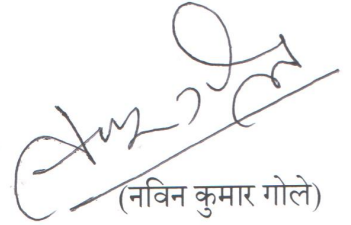 (नविन कुमार गोले)